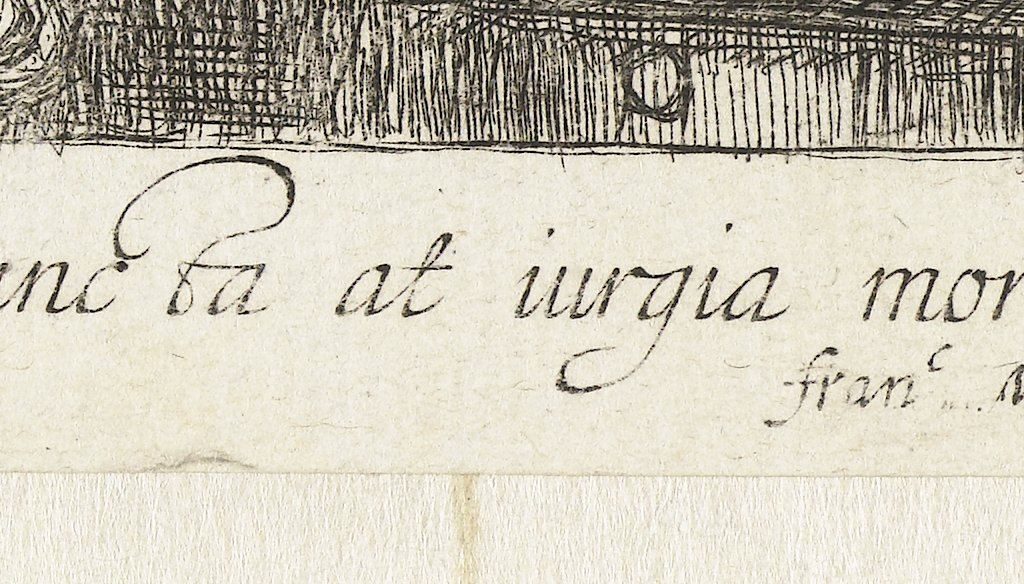 unc ta at iurgia mor
franc